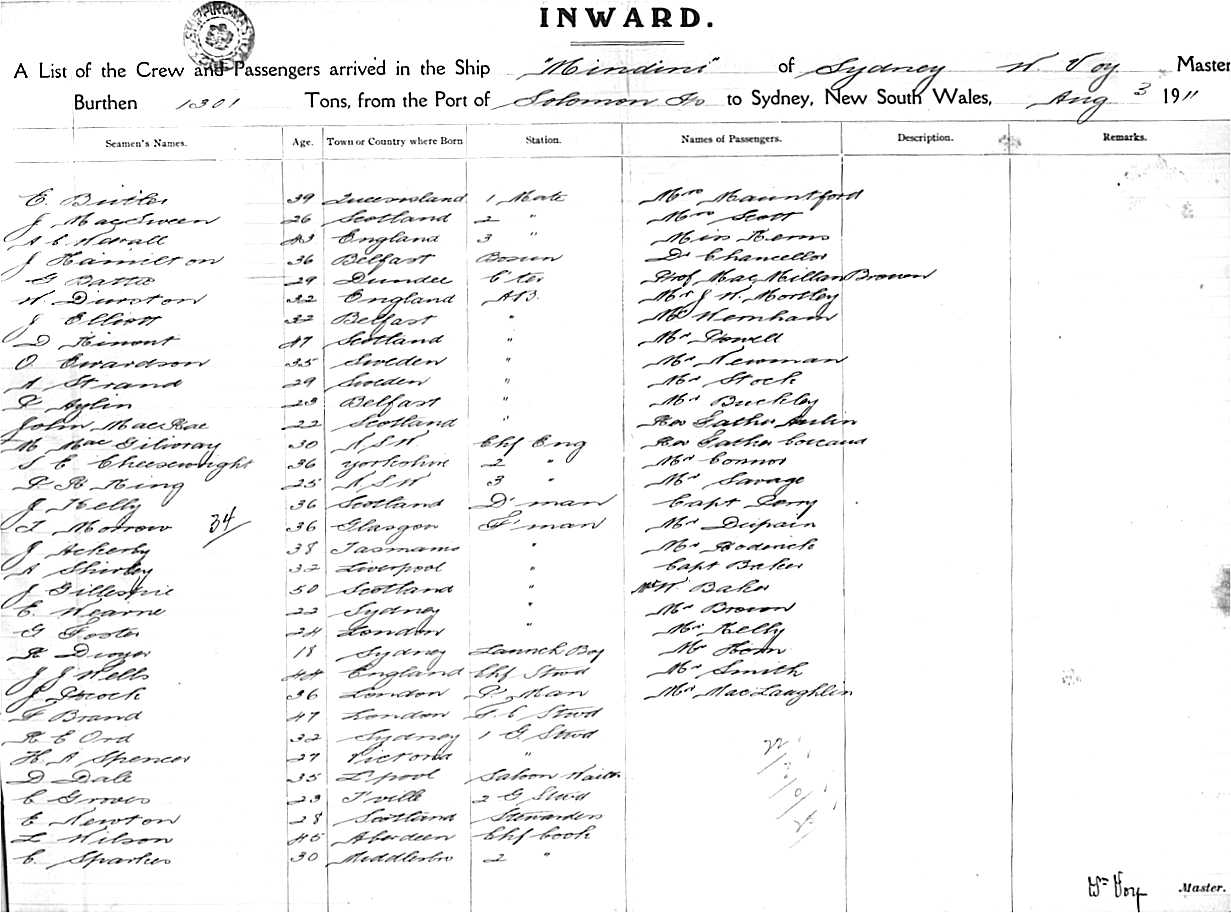 INWARD.
A List of the Crew and Passengers arrived in the Ship "Mindini" of Sydney W. Voy Master
Burthen 1301 Tons, from the Port of Solomon Is to Sydney, New South Wales, Aug 3 1911
Seamen's Names. Age. Town or Country where Born Station. Names of Passengers. Description. Remarks.
E. Butler 39 Queensland 1 Mate Mrs Mountford
J MacSween 26 Scotland 2 " Mrs Scott
A E Newall 43 England 3 " Miss Kerns
J Hamilton 36 Belfast Bosun Dr Chancellor
G Battie 29 Dundee C'ter Prof MacMillan Brown
W. Durston 32 England A.B. Mr J W. Mortley
J Elliott 32 Belfast " Mr Wernham
D Kimont 47 Scotland " Mr Powell
O Ewardson 35 Sweden " Mr Newman
A Strand 29 Sweden " Mr Stock
P Aylin 23 Belfast " Mr Buckley
John MacRae 22 Scotland " Rev Father
M MacGilivray 30 N S W Chf Eng Rev Father
S E Cheesewright 36 Yorkshire 2 " Mr Connor
P R King 25 N S W 3 " Mr Savage
J Kelly 36 Scotland D'man Capt Perry
T Morrow 34 36 Glasgow F'man Mr Dupain
J Ackerly 38 Tasmania " Mr Roderick
A Shirley 32 Liverpool " Capt Baker
J Gillespie 50 Scotland " W. Baker
E. Wearne 22 Sydney " Mr Brown
G Foster 24 London " Mr Kelly
R Dwyer 18 Sydney Launch Boy Mr Horn
J J Wells 44 England Chf Stwd Mr Smith
J Pocock 36 London P. Man Mr MacLaughlin
F Brand 47 London F. C Stwd
R E Ord 32 Sydney 1 G Stwd
H. A Spencer 27 Victoria "
D Dale 35 L'pool Saloon Waiter
C Groves 23 T'ville 2 G Stwd
E Newton 28 Scotland Stewardess
L Wilson 45 Aberdeen Chf Cook
C. Sparkes 30 Middlesbro 2 "
Wm Voy Master.